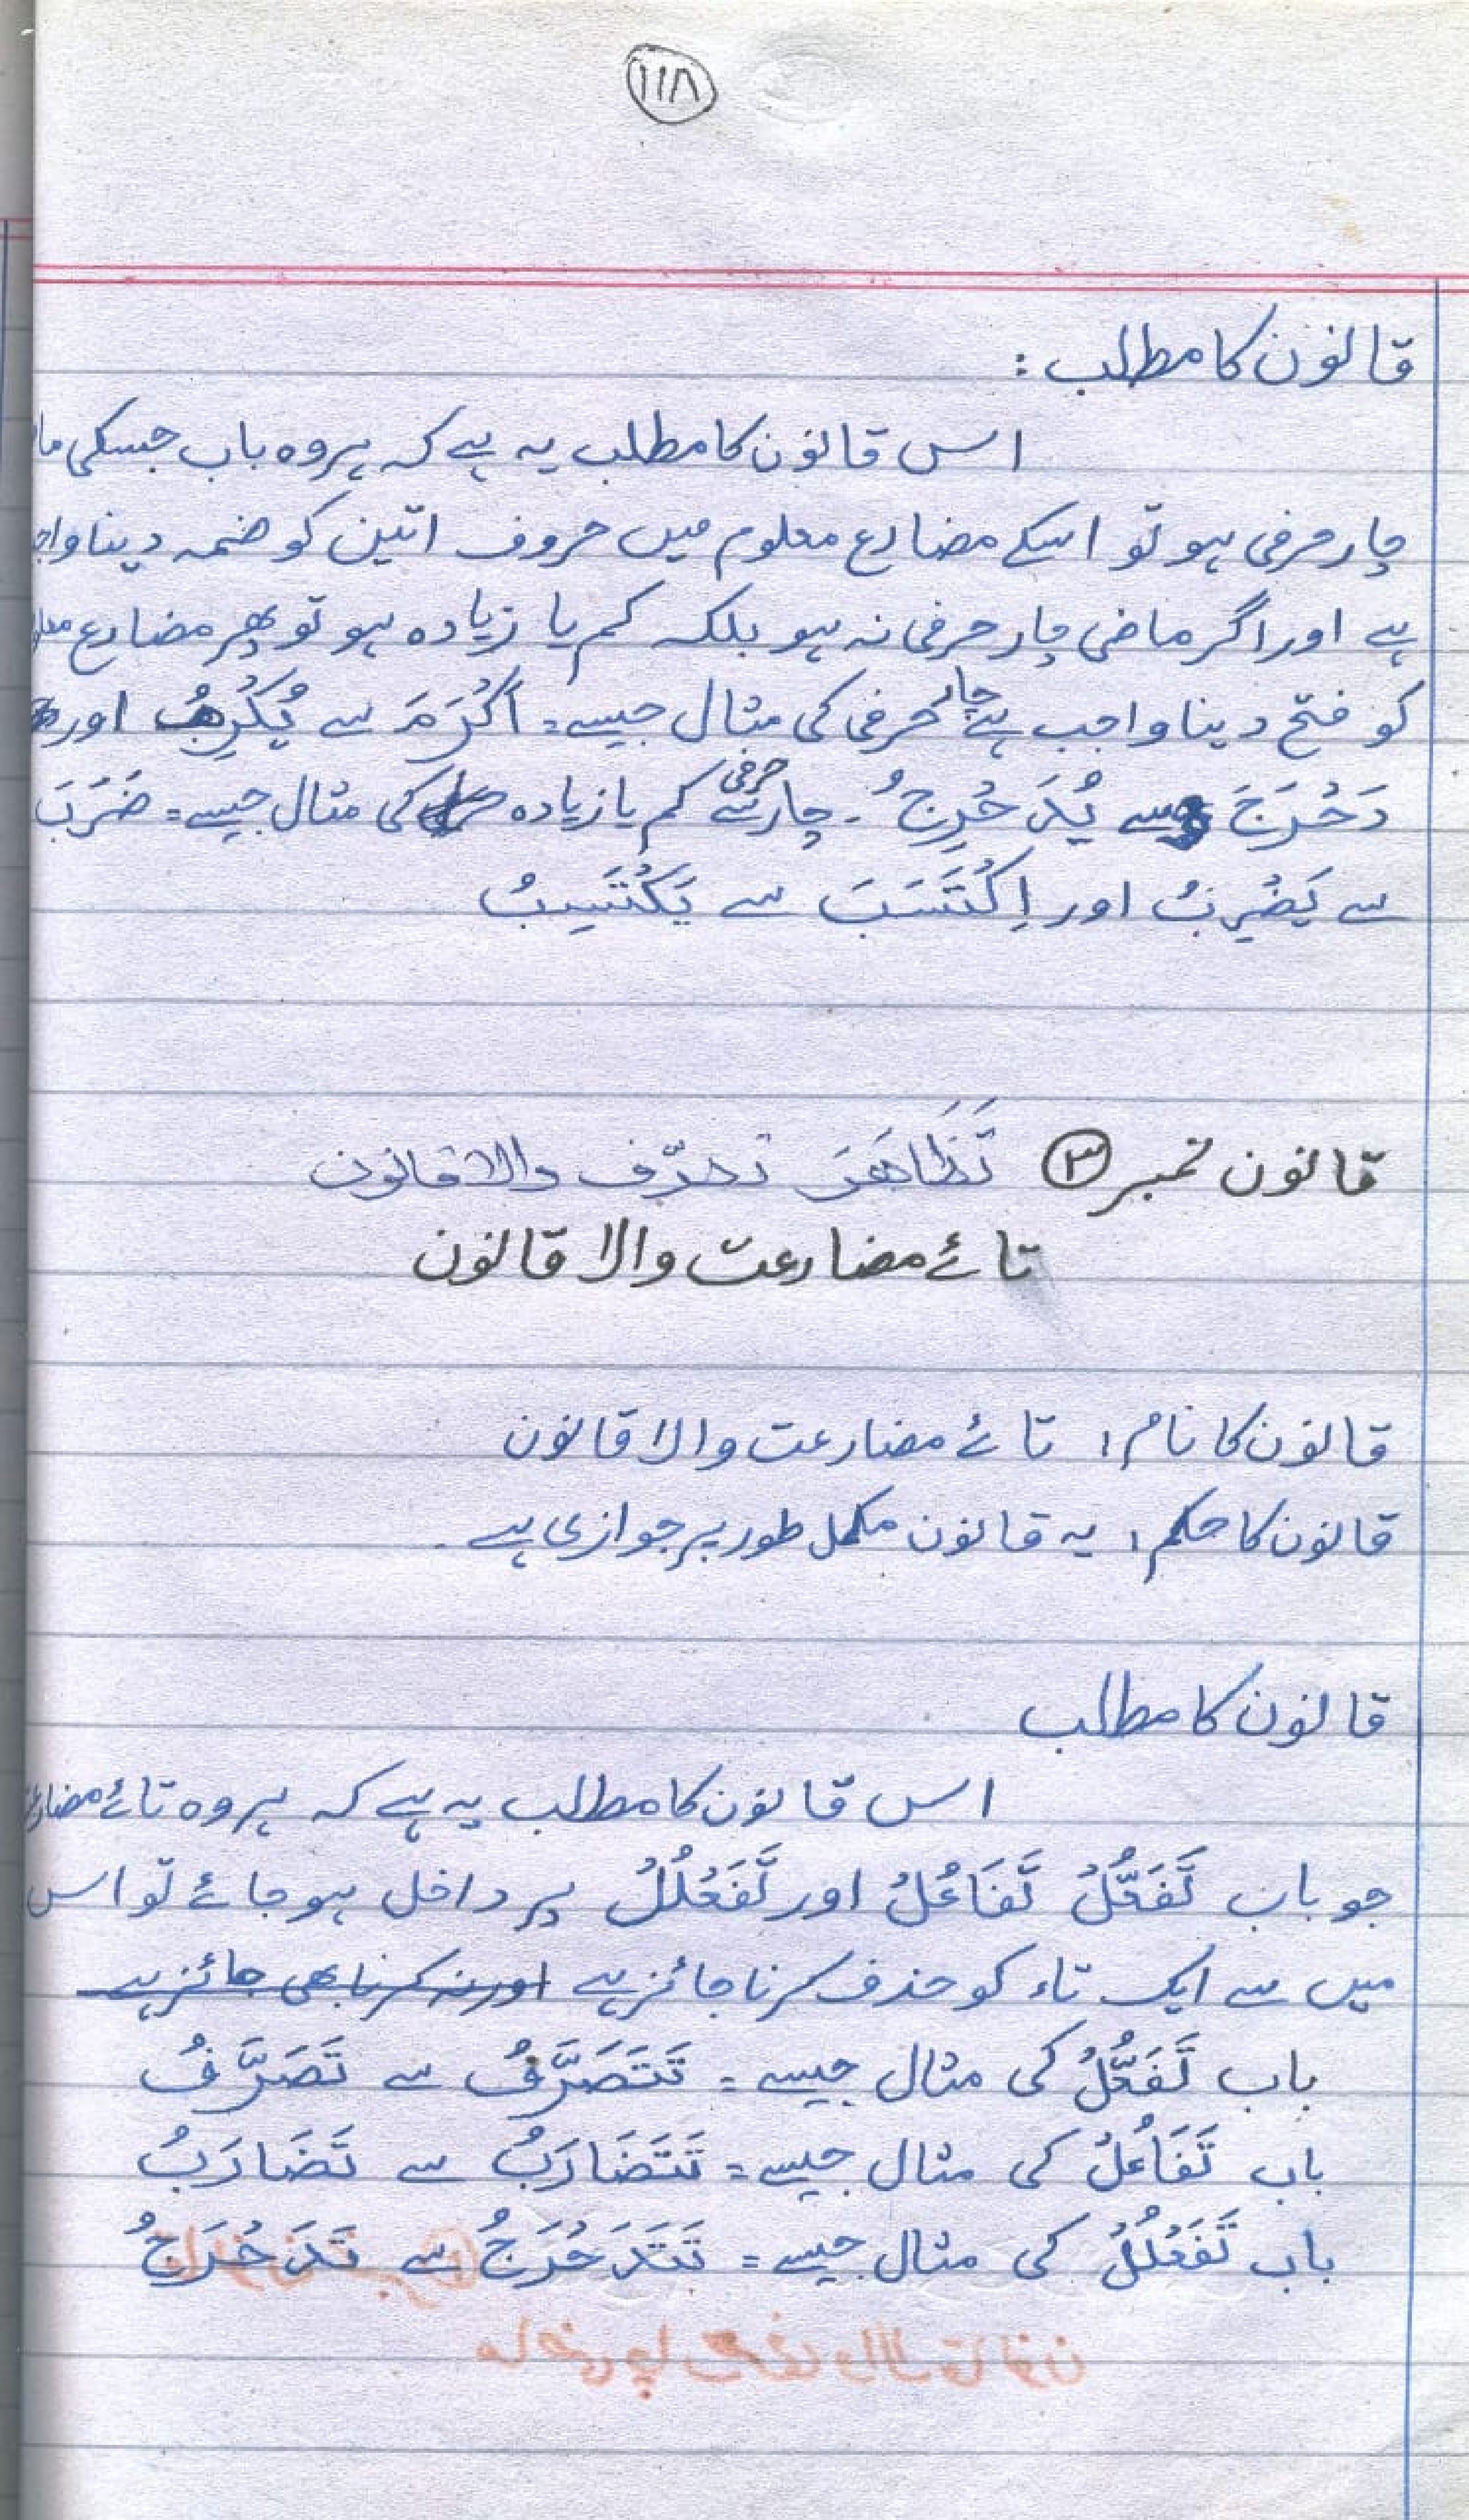 ۱۱۸
قانون کا مطلب :
اس قانون کا مطلب یہ ہے کہ ہر وہ باب جسکی ما
چار حرفی ہو تو اسکے مضارع معلوم میں حروف اتین کو ضمہ دینا واج
ہے اور اگر ماضی چار حرفی نہ ہو بلکہ کم یا زیادہ ہو تو پھر مضارع معلو
کو فتح دینا واجب ہے چار حرفی کی مثال جیسے = اَکْرَمَ سے یُکْرِمُ اور
دَحْرَجَ سے یُدَحْرِجُ ۔ چار حرفی سے کم یا زیادہ کی مثال جیسے = ضَرَبَ
سے یَضْرِبُ اور اِکْتَسَبَ سے یَکْتَسِبُ
قانون نمبر ۳ تَظَاهَرَ تصرّف والا قانون
تائے مضارعت والا قانون
قانون کا نام : تائے مضارعت والا قانون
قانون کا حکم : یہ قانون مکمل طور پر جوازی ہے ۔
قانون کا مطلب
اس قانون کا مطلب یہ ہے کہ ہر وہ تائے مضارع
جو باب تَفَعُّلُ تَفَاعُلُ اور تَفَعْلُلُ پر داخل ہو جائے تو اس
میں سے ایک تاء کو حذف کرنا جائز ہے اور نہ کرنا بھی جائز ہے
باب تَفَعُّلُ کی مثال جیسے = تَتَصَرَّفُ سے تَصَرَّفُ
باب تَفَاعُلُ کی مثال جیسے = تَتَضَارَبُ سے تَضَارَبُ
باب تَفَعْلُلُ کی مثال جیسے = تَتَدَحْرَجُ سے تَدَحْرَجُ